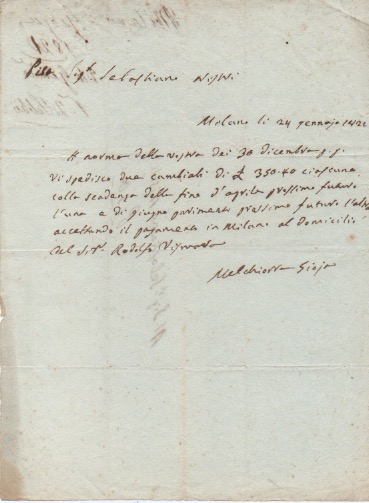 Sebastiano Nistri
Milano li 24 gennajo 182
A norma della vostra dei 30 dicembre p. p.
vi spedisco due cambiali di £ 350.40 ciascuna
colla scadenza della fine d'aprile prossimo futuro
l'una e di giugno parimenti prossimo futuro l'altra
accettando il pagamento in Milano al Domicilio
del Sigr. Rodolfo Vismara
Melchiorre Gioja